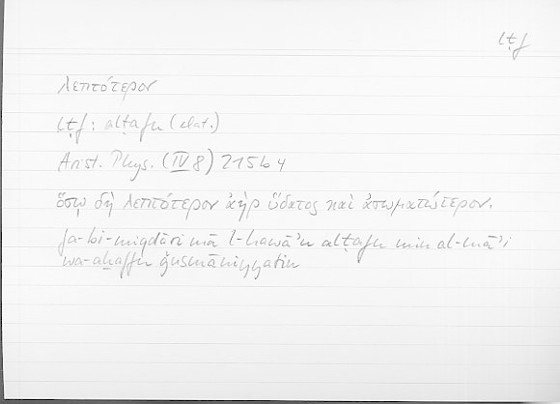 lṭf
λεπτότερον
lṭf: alṭafu (elat.)
Arist. Phys. (IV 8) 215b4
ὅσῳ δὴ λεπτότερον ἀὴρ ὕδατος καὶ ἀσωματώτερον.
fa-bi-miqdāri mā l-hawāʾu alṭafu min al-māʾi
wa-aḫaffu ǧusmāniyyatin